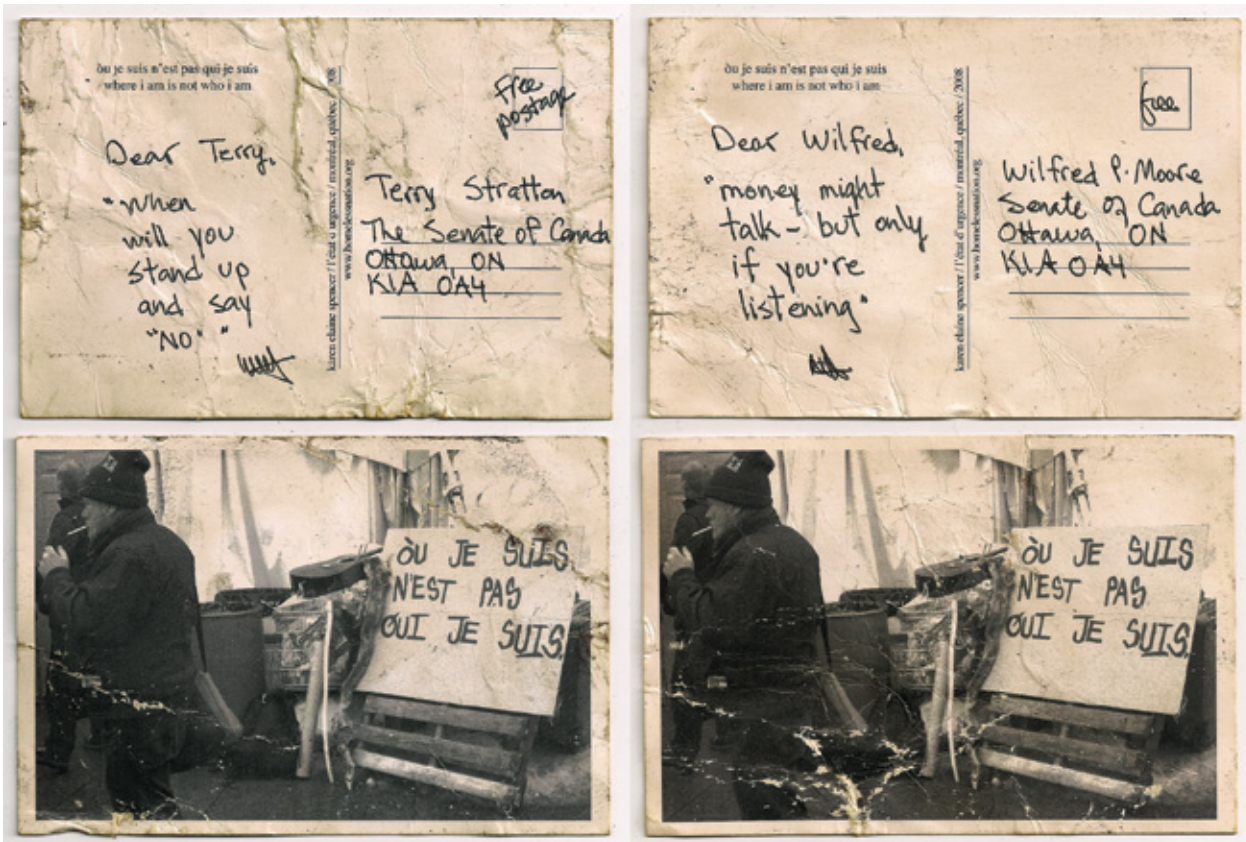 òu je suis n'est pas qui je suis
where i am is not who i am
Free
postage
Dear Terry,
"When
will you
stand up
and say
"NO" "
karen elaine spencer / l'état d'urgence / montréal, québec / 2008
www.homelessnation.org
Terry Stratton
The Senate of Canada
Ottawa, ON
K1A 0A4
òu je suis n'est pas qui je suis
where i am is not who i am
free
Dear Wilfred,
"money might
talk - but only
if you're
listening"
karen elaine spencer / l'état d'urgence / montréal, québec / 2008
www.homelessnation.org
Wilfred P. Moore
Senate of Canada
Ottawa, ON
K1A 0A4
ÒU JE SUIS
N'EST PAS
QUI JE SUIS.
ÒU JE SUIS
N'EST PAS
QUI JE SUIS.